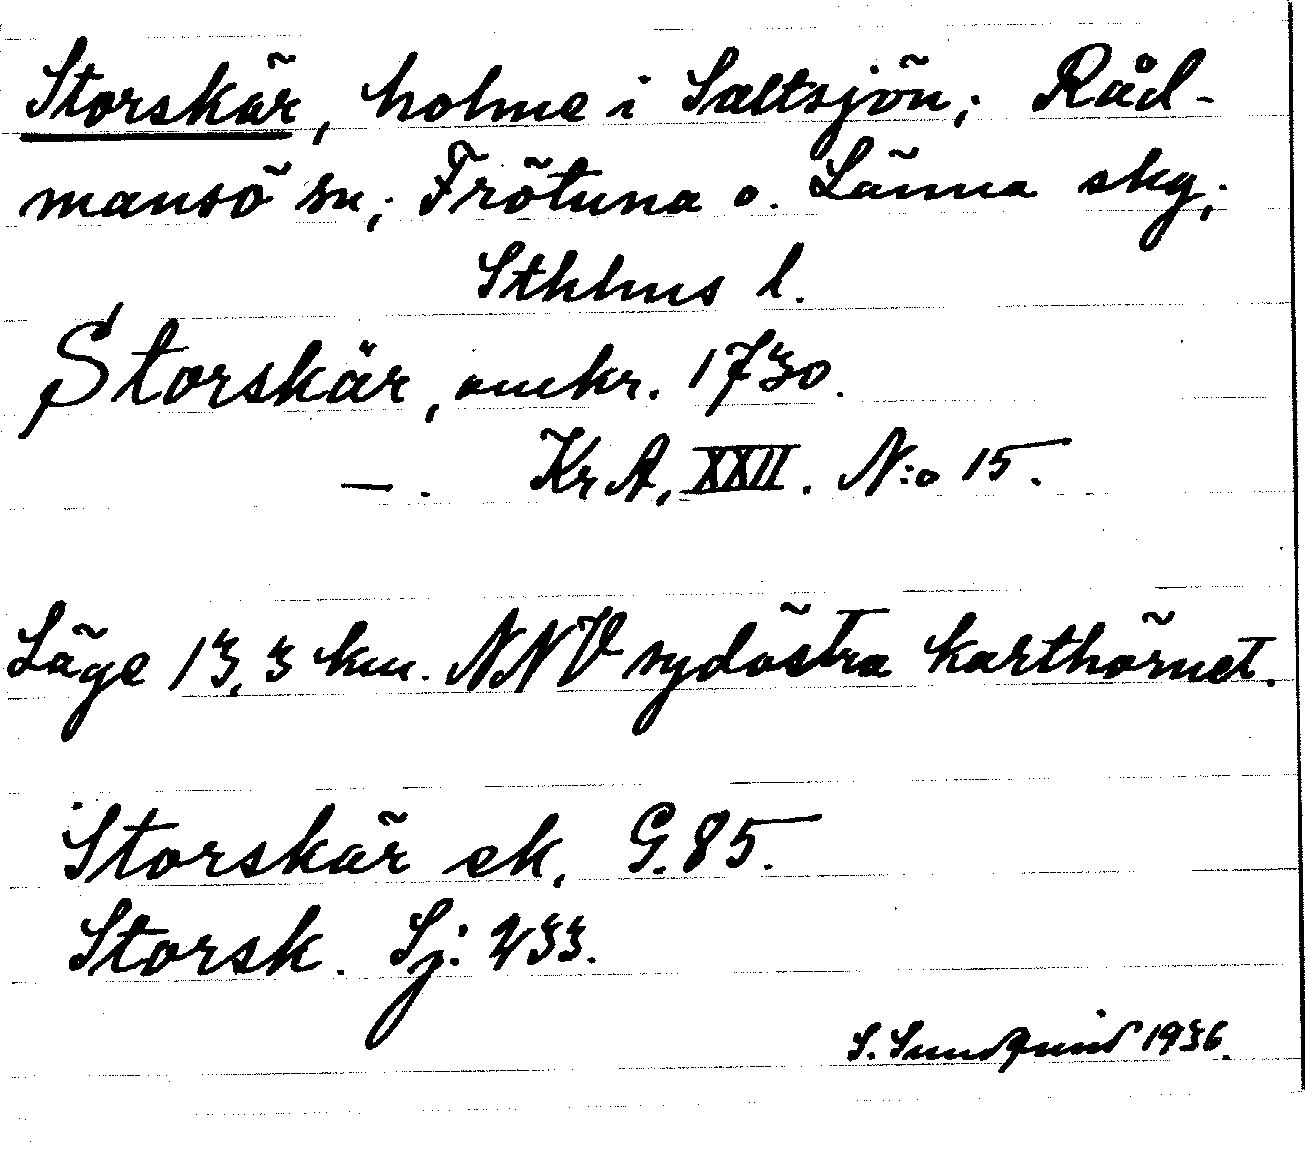 Storskär, holme i Saltsjön; Råd-
mansö sn; Frötuna o. Länna skg;
Sthlms l.
Storskär, omkr. 1730.
—. KrA, XXII. N:o 15.
Läge 13,3 km. NNV sydöstra karthörnet.
Storskär ek. G.85.
Storsk. Sj: 233.
S. Sundquist 1936.